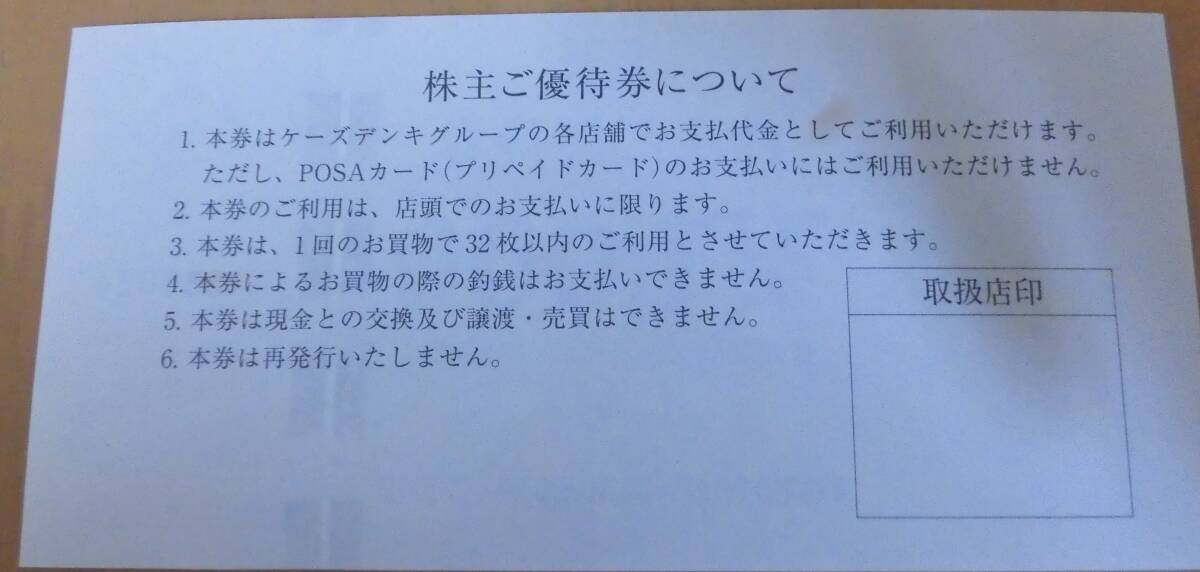 株主ご優待券について
1. 本券はケーズデンキグループの各店舗でお支払代金としてご利用いただけます。
ただし、POSAカード(プリペイドカード)のお支払いにはご利用いただけません。
2. 本券のご利用は、店頭でのお支払いに限ります。
3. 本券は、1回のお買物で32枚以内のご利用とさせていただきます。
4. 本券によるお買物の際の釣銭はお支払いできません。
5. 本券は現金との交換及び譲渡・売買はできません。
6. 本券は再発行いたしません。
取扱店印